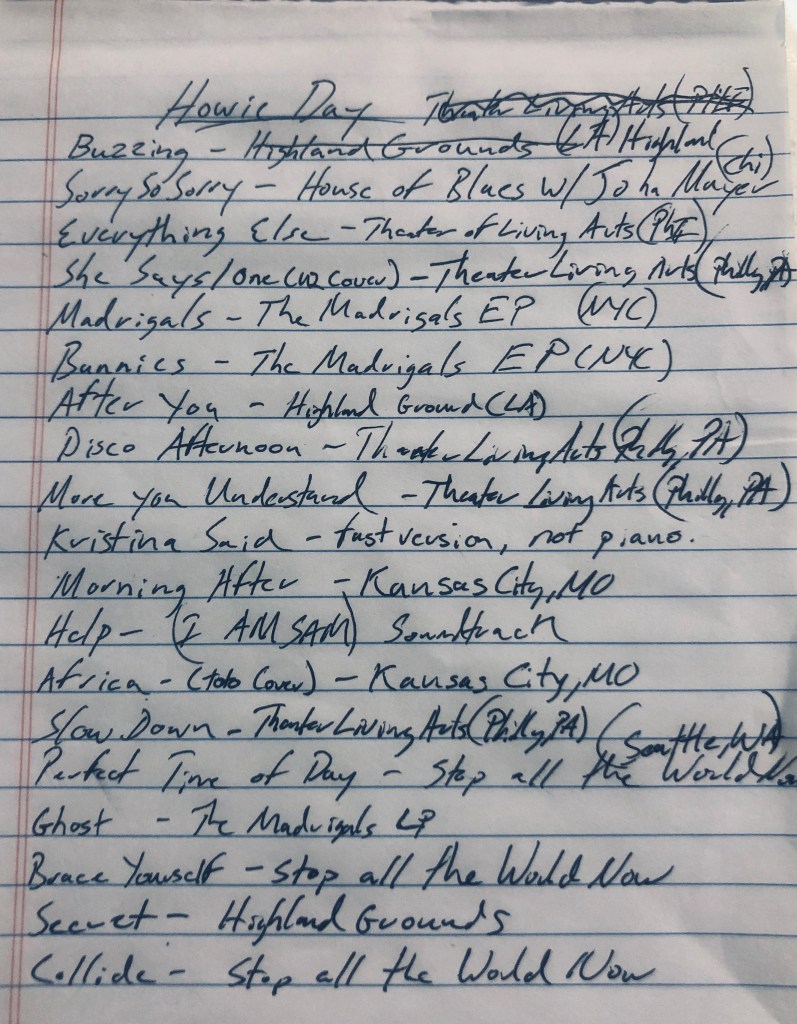 Howie Day Theater Living Arts (PHI)
Buzzing - Highland Grounds (LA) Highland
Sorry So Sorry - House of Blues w/ John Mayer (Chi)
Everything Else - Theater of Living Arts (PHI)
She Says/One (U2 Cover) - Theater Living Arts (Philly, PA)
Madrigals - The Madrigals EP (NYC)
Bunnies - The Madrigals EP (NYC)
After You - Highland Ground (LA)
Disco Afternoon - Theater Living Arts (Philly, PA)
More you Understand - Theater Living Arts (Philly, PA)
Kristina Said - fast version, not piano.
Morning After - Kansas City, MO
Help - (I AM SAM) Soundtrack
Africa - (Toto Cover) - Kansas City, MO
Slow Down - Theater Living Arts (Philly, PA) (Seattle, WA)
Perfect Time of Day - Stop all the World Now
Ghost - The Madrigals LP
Brace Yourself - Stop all the World Now
Secret - Highland Grounds
Collide - Stop all the World Now